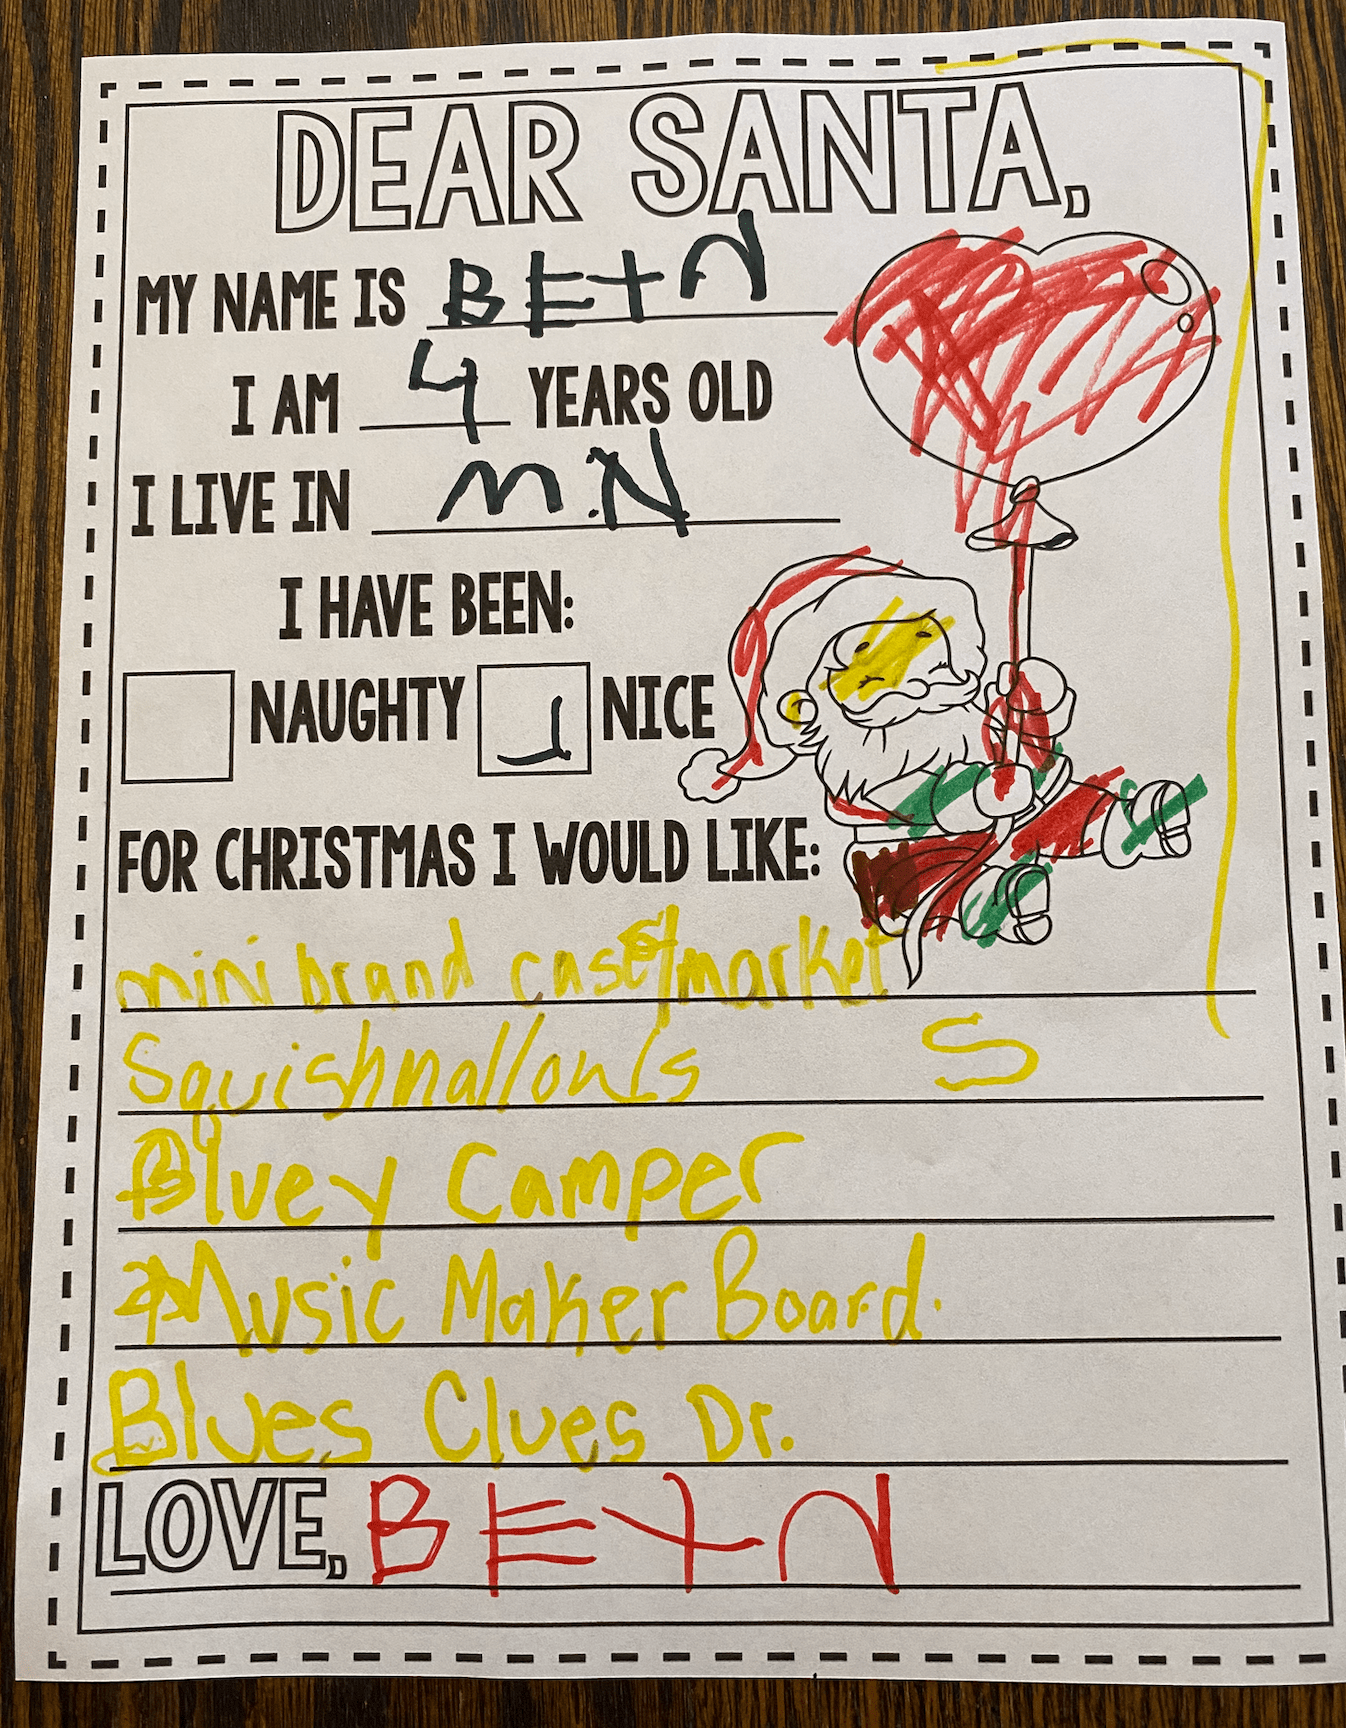 DEAR SANTA,
MY NAME IS BEtN
I AM 4 YEARS OLD
I LIVE IN MN
I HAVE BEEN:
NAUGHTY NICE
FOR CHRISTMAS I WOULD LIKE:
mini brand case/market
Squishmallows S
Bluey Camper
Music Maker Board.
Blues Clues Dr.
LOVE, BEtN